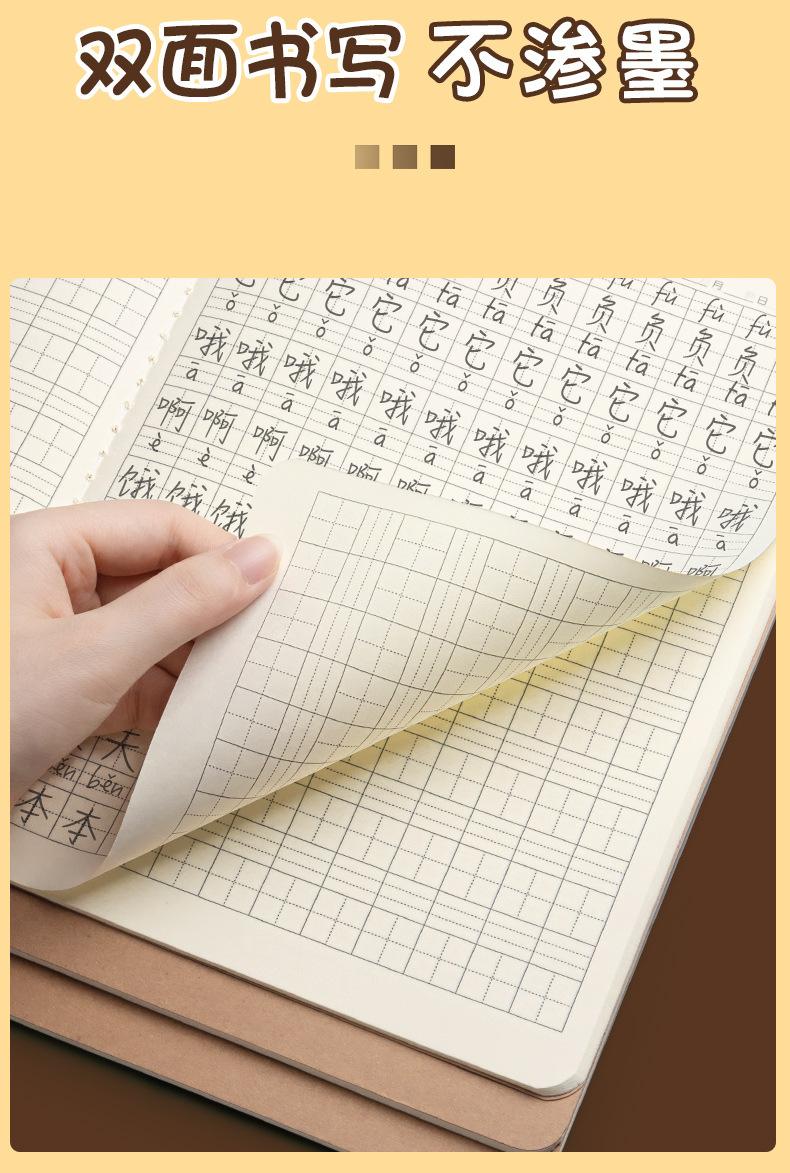 双面书写 不渗墨
月 日
fù fù fù fù
负 负 负 负 负 负
tā tā tā tā tā tā tā tā
它 它 它 它 它 它 它 它 它 它 它 它
ǒ ǒ ǒ ǒ ǒ ǒ ǒ ǒ ǒ ǒ ǒ ǒ
哦 哦 哦 哦 哦 哦 哦 哦 哦 哦 哦 哦
ā ā ā ā ā ā ā ā ā ā ā ā
啊 啊 啊 啊 啊 啊
è è è
饿 饿 饿
夫
běn běn
本 本